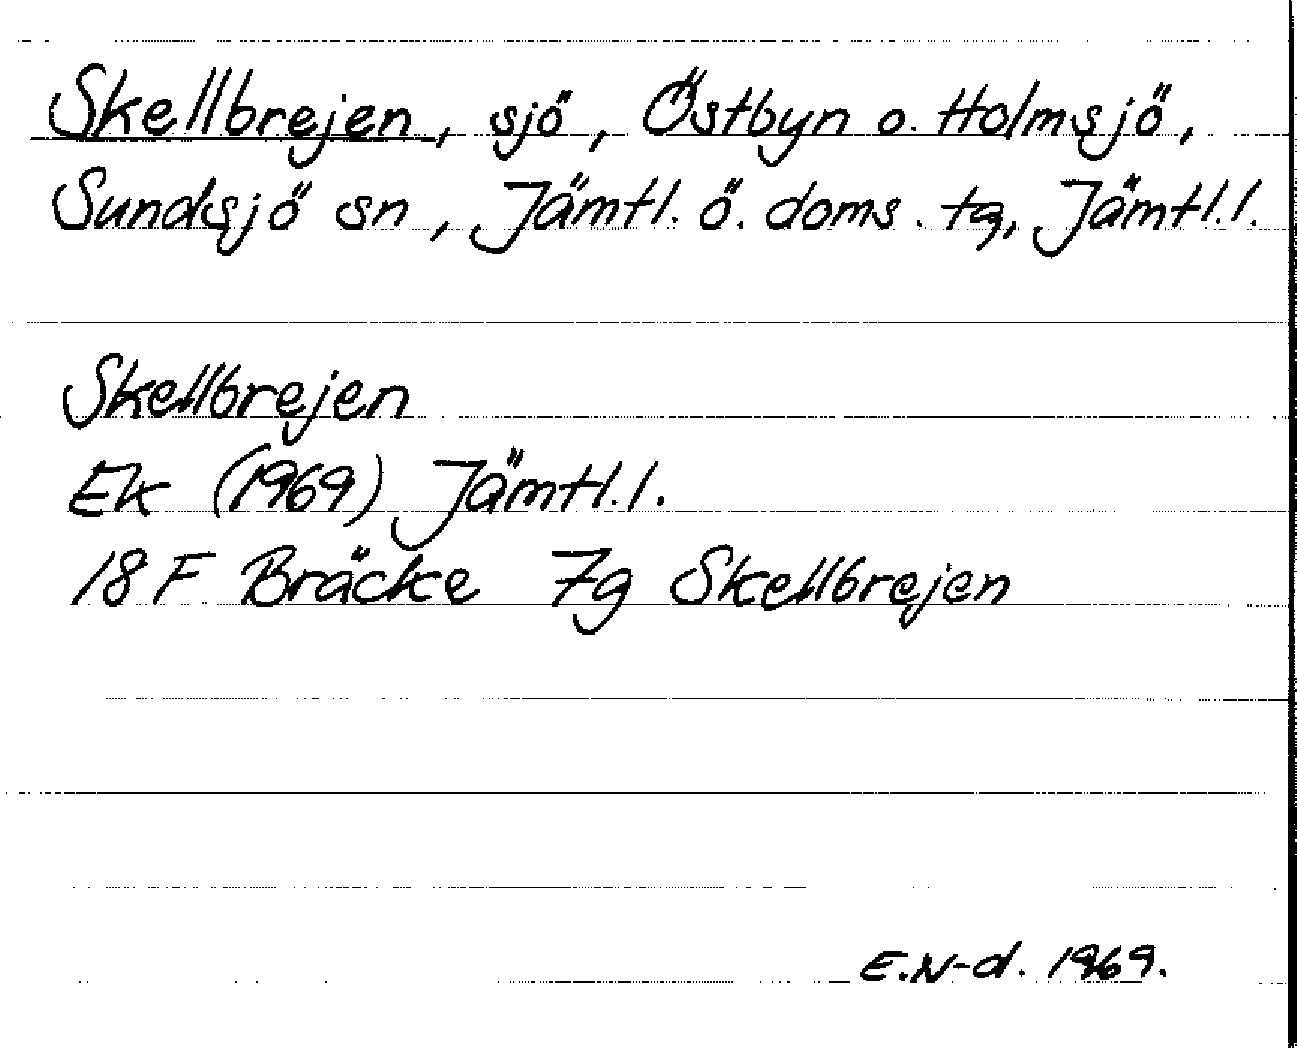 Skellbrejen, sjö, Östbyn o. Holmsjö,
Sundsjö sn, Jämtl. ö. doms. tg, Jämtl.l.
Skellbrejen
Ek (1969) Jämtl.l.
18 F Bräcke 7g Skellbrejen
E.N-d. 1969.